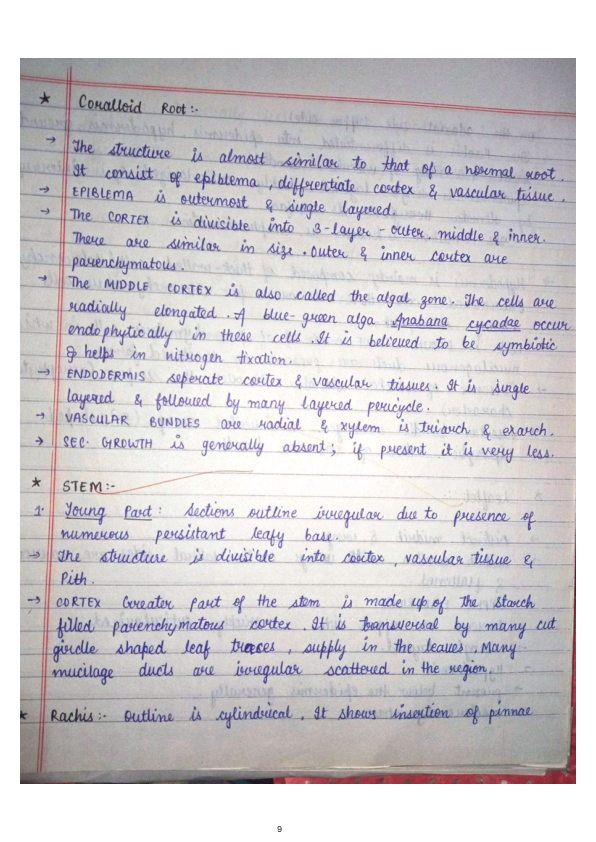 ★ Coralloid Root :-
→ The structure is almost similar to that of a normal root.
It consist of epiblema, differentiate cortex & vascular tissue.
→ EPIBLEMA is outermost & single layered.
→ The CORTEX is divisible into 3-layer - outer, middle & inner.
There are similar in size. Outer & inner cortex are
parenchymatous.
→ The MIDDLE CORTEX is also called the algal zone. The cells are
radially elongated. A blue-green alga, Anabana cycadae occur
endophytically in these cells. It is believed to be symbiotic
& helps in nitrogen fixation.
→ ENDODERMIS seperate cortex & vascular tissues. It is single
layered & followed by many layered pericycle.
→ VASCULAR BUNDLES are radial & xylem is triarch & exarch.
→ SEC. GROWTH is generally absent; if present it is very less.
★ STEM :-
1. Young Part : Sections outline irregular due to presence of
numerous persistant leafy base.
→ The structure is divisible into cortex, vascular tissue &
Pith.
→ CORTEX Greater part of the stem is made up of the starch
filled parenchymatous cortex. It is transversal by many cut
girdle shaped leaf traces, supply in the leaves. Many
mucilage ducts are irregular scattered in the region.
★ Rachis :- Outline is cylindrical. It shows insertion of pinnae
9